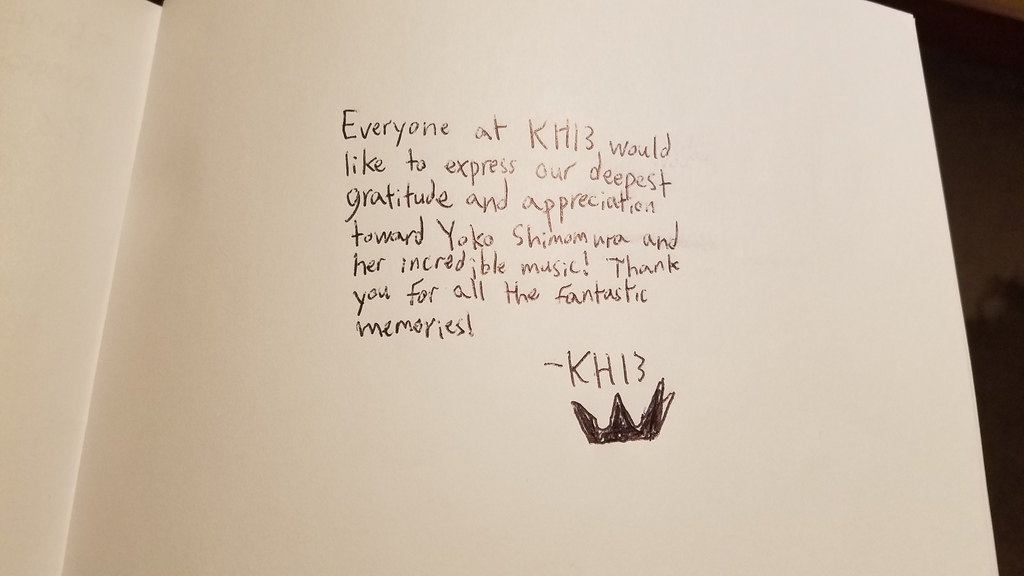 Everyone at KH13 would
like to express our deepest
gratitude and appreciation
toward Yoko Shimomura and
her incredible music! Thank
you for all the fantastic
memories!
-KH13